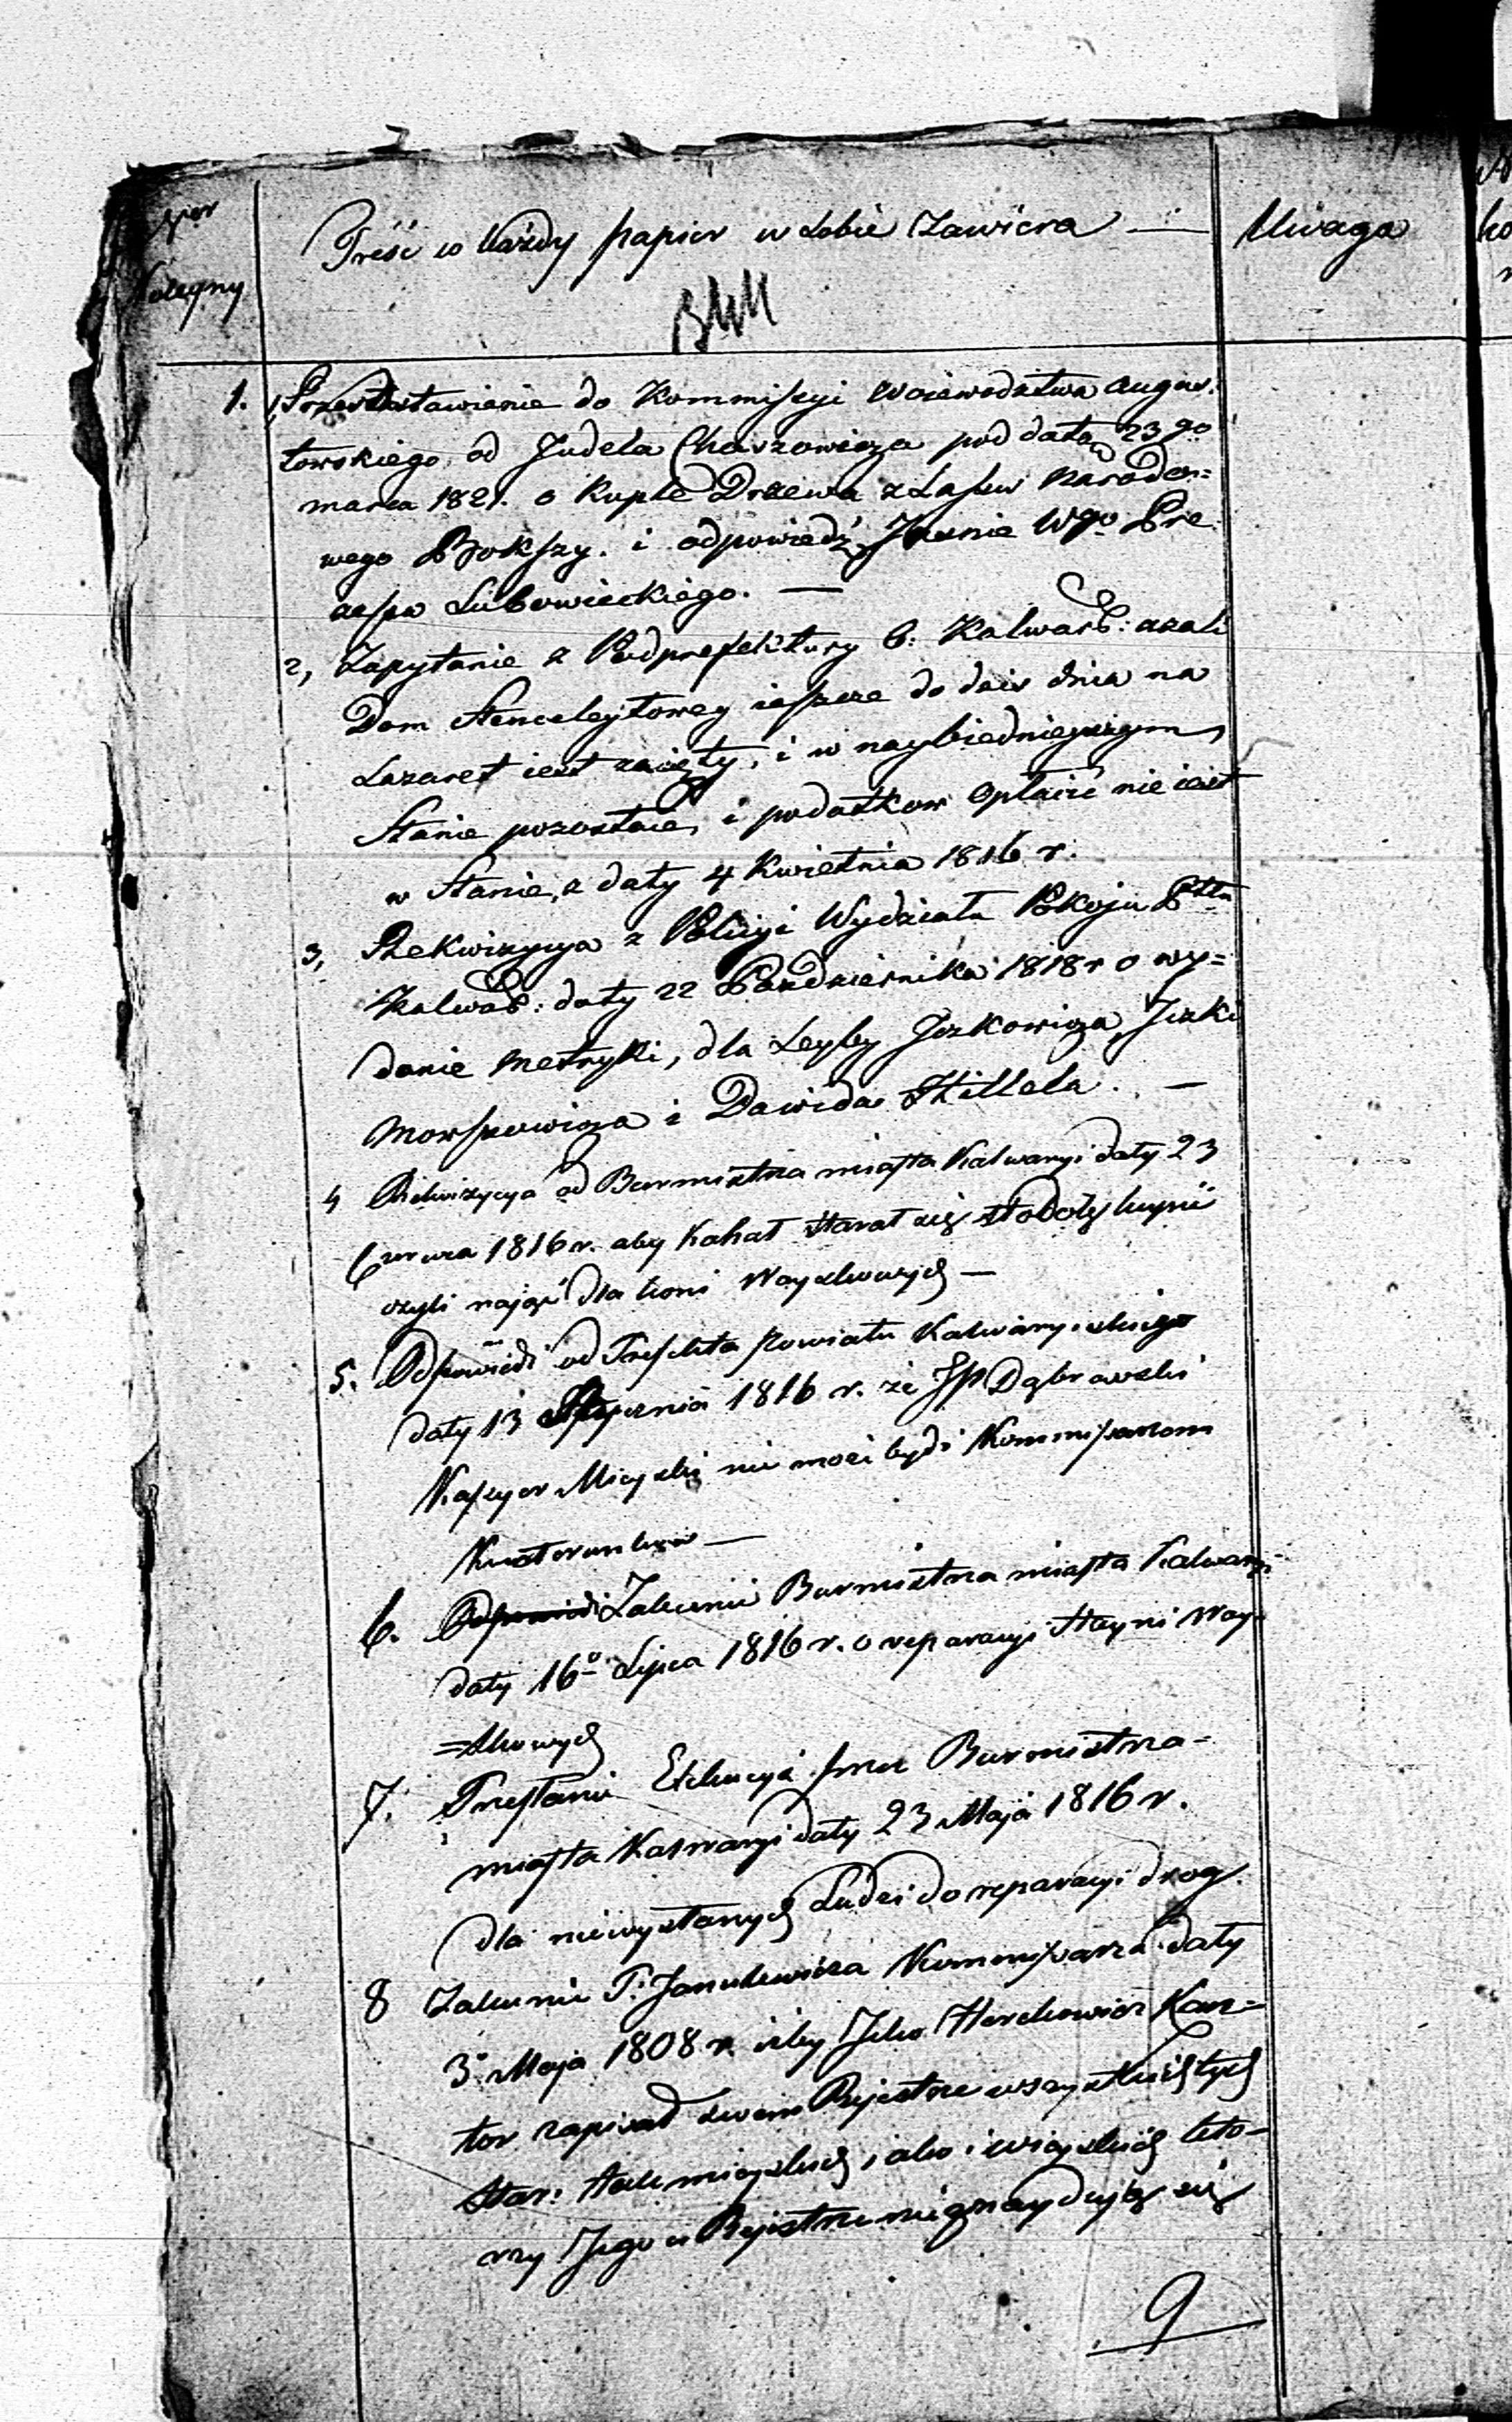 Ner
Kolegny
Treść co każdy papier w sobie Zawiera —
Uwaga
1. Przedstawienie do Kommissyi Woiewodztwa Augus:
towskiego od Judela Chaszowicza pod datą 23go
marca 1821. o kuple Drzewa z Lasow narodo=
wego Brokszy. i odpowiedź Jasnie Wgo Pre
zesa Lubowieckiego. —
2, Zapytanie z Podprefektury b: Kalwar: azali
Dom Stencelejtowey ieszcze do dzis dnia na
Lazaret iest zaięty, i w naybiednieyszym
Stanie pozostaie, i podatkow opłacić nie iest
w Stanie, z daty 4 Kwietnia 1816 r.
3, Rekwizycya z Policyi Wydziału Pokoju Pttu
Kalwar: daty 22 Pazdziernika 1818 r o wy=
danie metryki, dla Leyby Jozkowicza, Jcki
Morszowicza i Dawida Hillela. —
4 Rekwizycya od Burmistrza miasta Kalwaryi daty 23
Czerwca 1816 r. aby Kahał starał się stodoły kupić
czyli nająć dla koni Woyskowych —
5. Odpowiedź od Prefekta Powiatu Kalwaryiskiego
daty 13 Stycznia 1816 r. że JP Dąbrowski
Kassyer Mieyski nie może bydź Kommissarzem
Kwaterunkow —
6. Odpowiedź Zalecenie Burmistrza miasta Kalwaryi
daty 16o Lipca 1816 r. o reparacyi Stayni Woy=
=skowych
7. Przesłanie Exekucyi przez Burmistrza
miasta Kalwaryi daty 23 Maja 1816 r.
dla niewysłanych Ludzi do reparacyi drog
8 Zalecenie P: Janulewicza Kommissarza daty
3 Maja 1808 r. izby Jcko Herckowicz Kan=
tor zapisał swem Rejestrze wszystkich tych
Star: tak mieyskich, iako i wieyskich kto=
rzy Jego w Rejestrze nieznaydują się
9